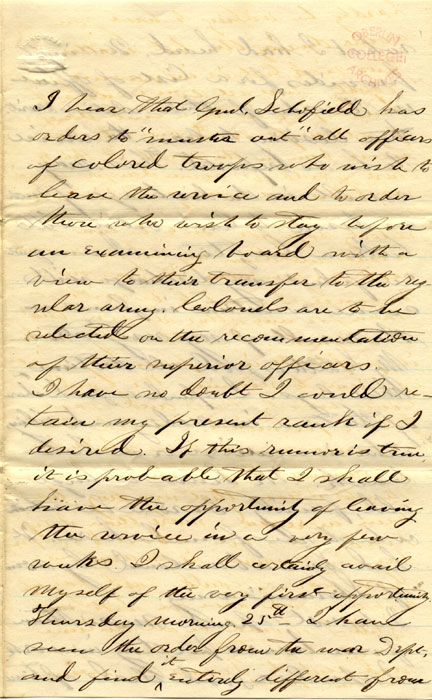 OBERLIN
COLLEGE
ARCHIVES
I hear that Genl. Schofield has
orders to "muster out" all officers
of colored troops who wish to
leave the service and to order
those who wish to stay before
an examining board with a
view to their transfer to the reg
ular army. Colonels are to be
selected on the recommendation
of their superior officers.
I have no doubt I could re-
tain my present rank if I
desired. If this rumor is true
it is probable that I shall
have the opportunity of leaving
the service in a very few
weeks. I shall certainly avail
myself of the very first opportunity.
Thursday morning 25th- I have
seen the order from the war Dept,
and find it entirely different from